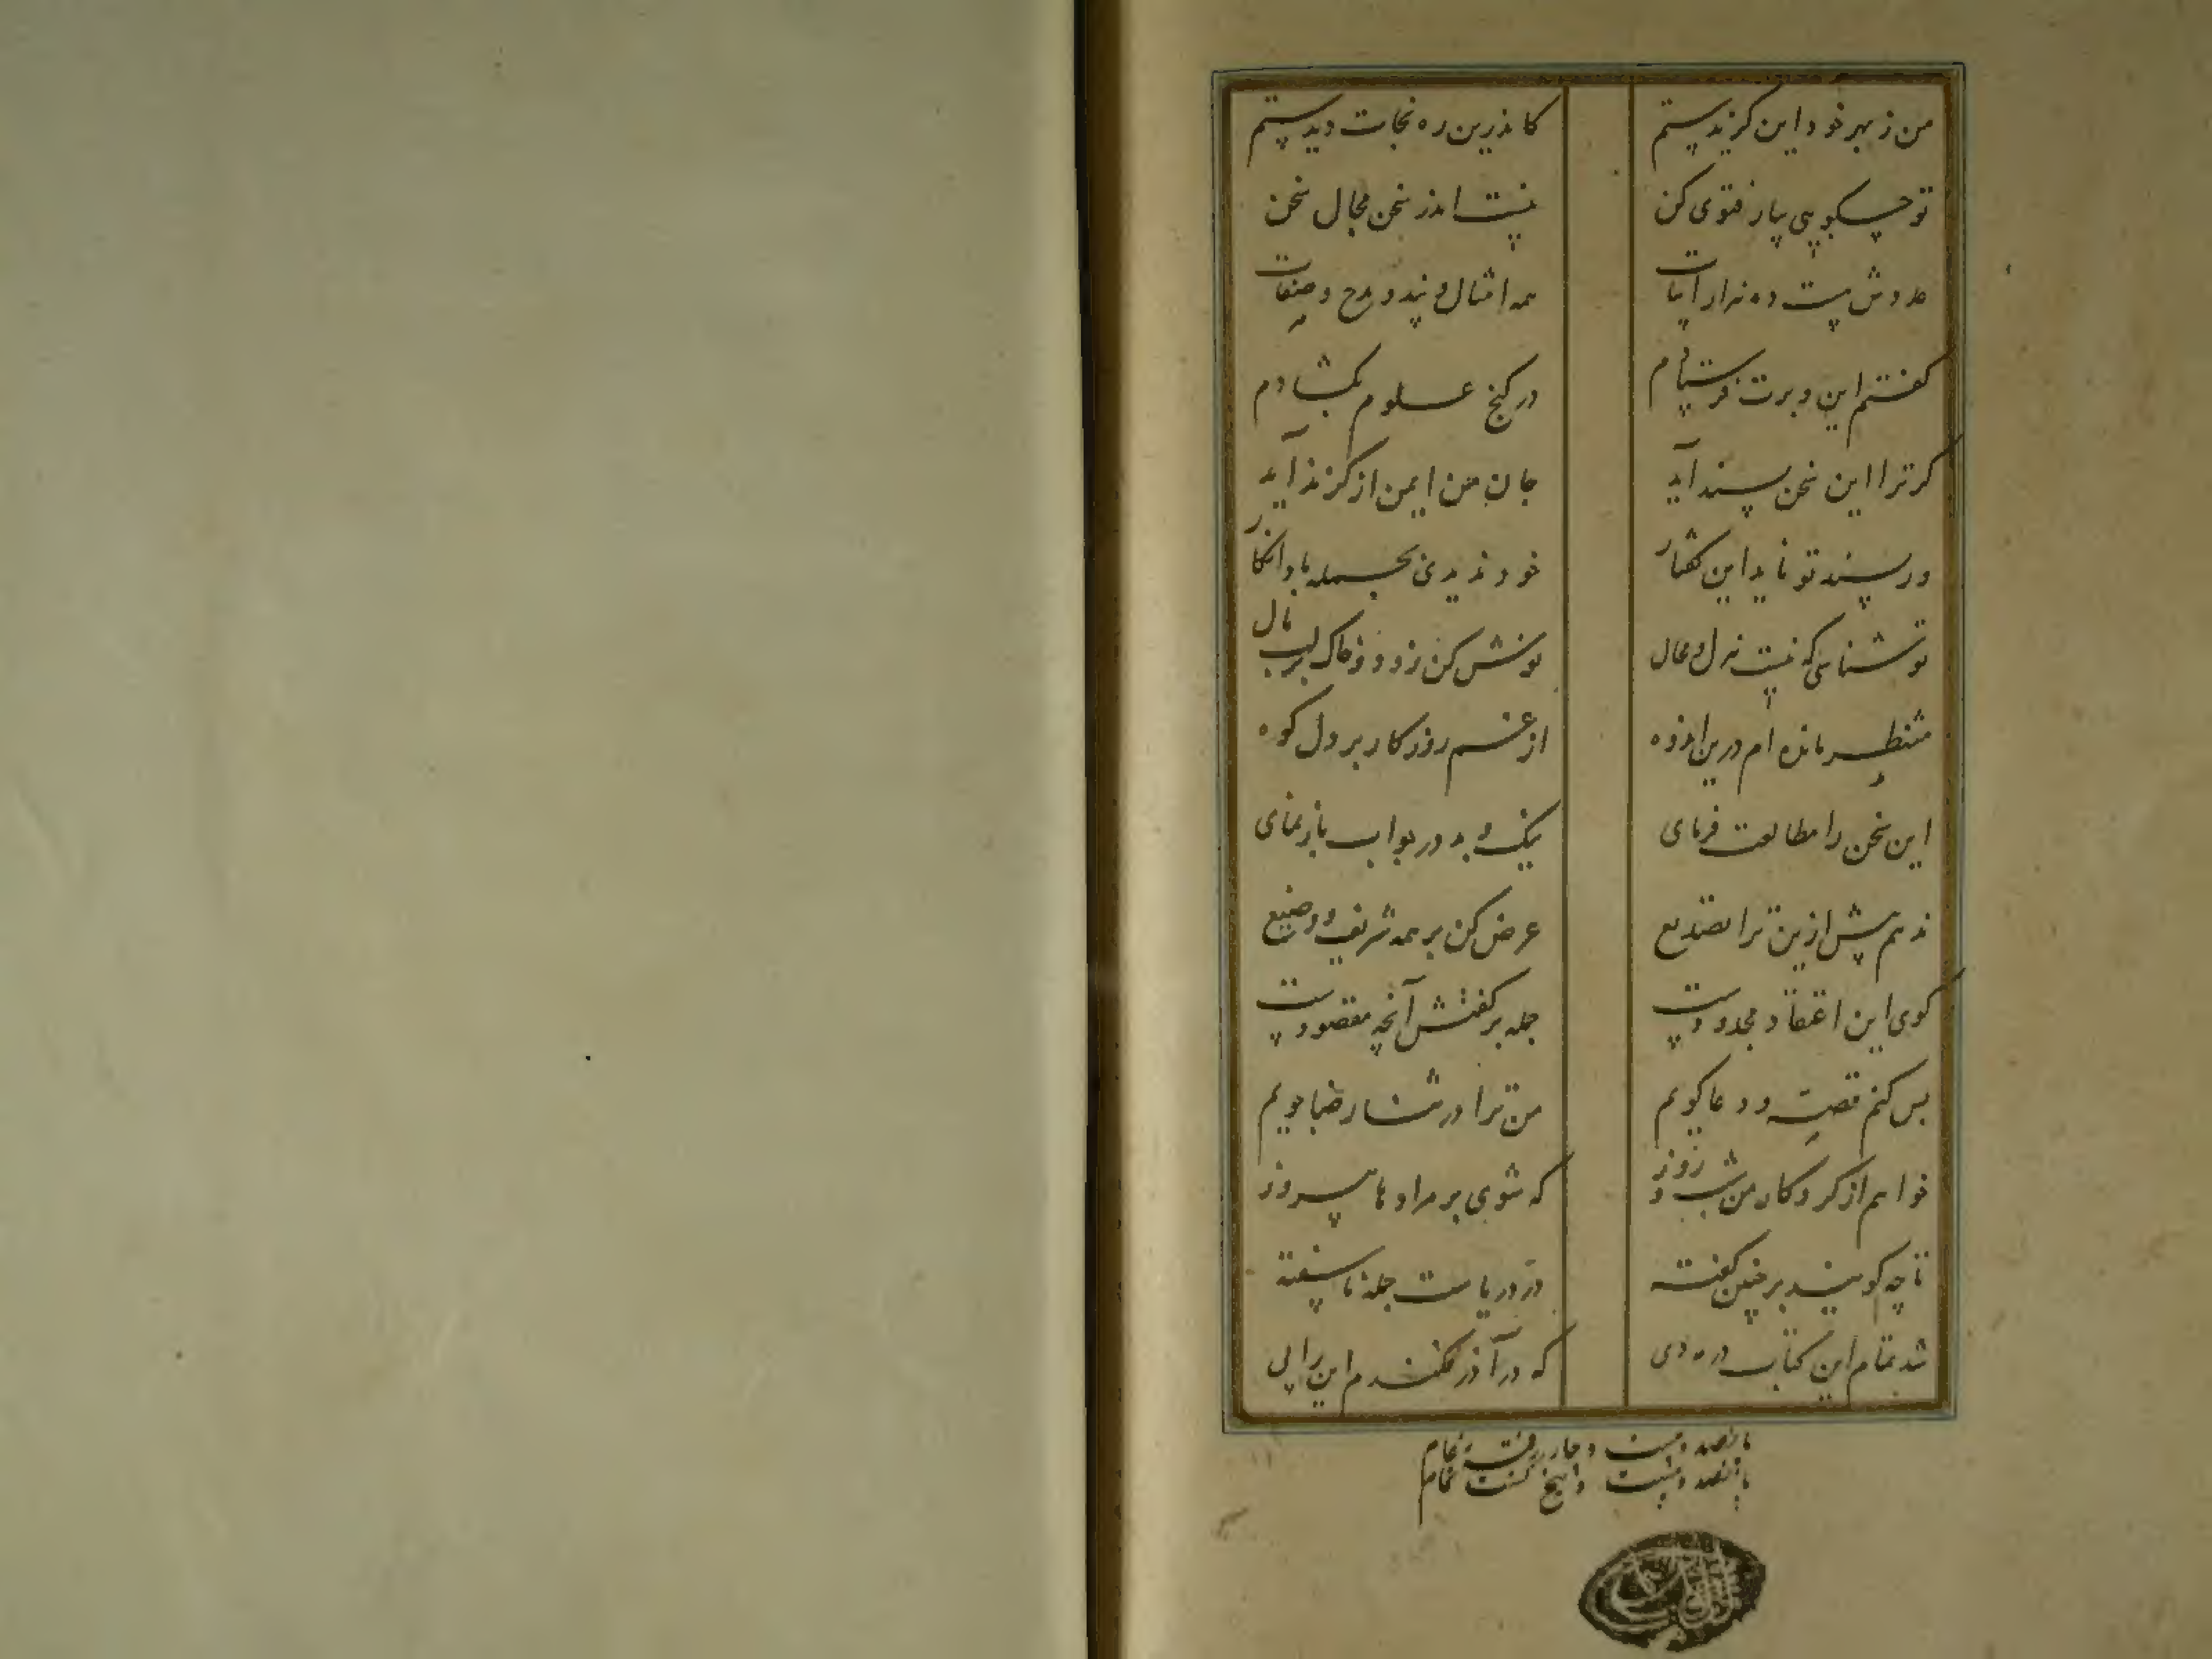 من ز بهر خود این گزیدستم کاندرین ره نجات دیدستم
تو چه گویی بیار فتوی کن نیست اندر سخن مجال سخن
عددش هست ده هزار ابیات همه امثال و پند و مدح و صفات
گفتم این و برت فرستادم در گنج علوم بگشادم
گر ترا این سخن پسند آید جان من ایمن از گزند آید
ور پسند تو ناید این گفتار خود ندیدی بجمله باد انگار
تو شناسی که نیست هزل و محال پوشش کن زود و خاک بر لب مال
منتظر مانده ام درین اندوه از غم روزگار بر دل کوه
این سخن را مطالعت فرمای نیک و بد در جواب باز نمای
ندهم بیش ازین ترا تصدیع عرض کن بر همه شریف و وضیع
گوی این اعتقاد مجدودست جمله بر گفتش آنچه مقصودست
بس کنم قصه و دعا گویم من ترا در ثنا رضا جویم
خواهم از کردگار من شب و روز که شوی بر مراد ها پیروز
تا چه گویند بر چنین گفته در دریاست جمله ناسفته
شد تمام این کتاب در مه دی که در آذر فکندم این را پی
پانصد و بیست و چار رفته ز عام
پانصد و بیست و پنج گشت تمام